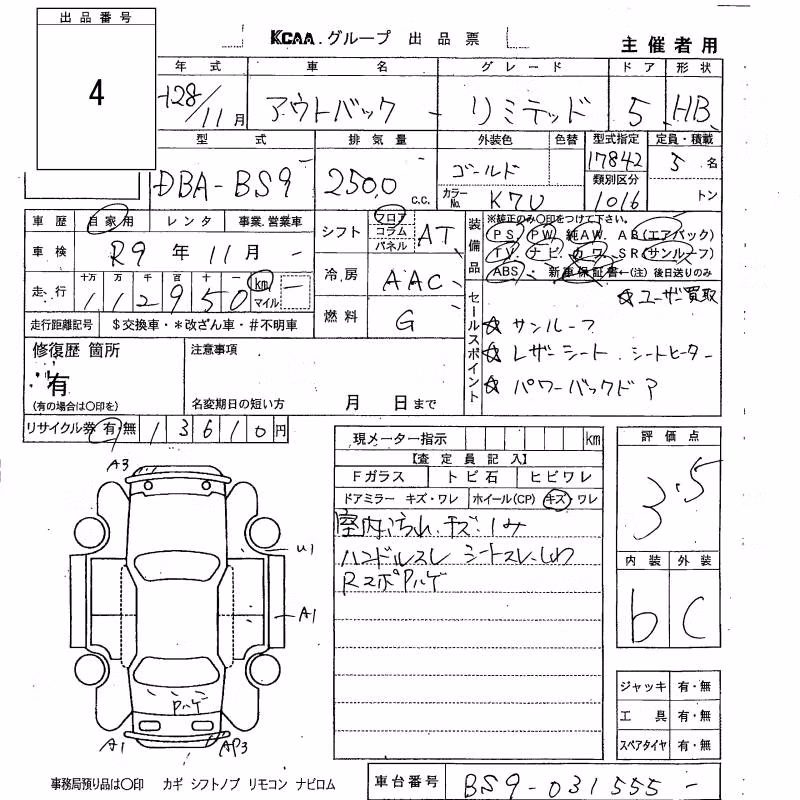 出品番号
4
KCAA.グループ 出品票
主催者用
年式 車名 グレード ドア 形状
H28/11月 アウトバック リミテッド 5 HB
型式 排気量 外装色 色替 型式指定 定員・積載
DBA-BS9 2500 c.c. ゴールド 17842 5名
カラーNo. K7U 類別区分 1016 トン
車歴 自家用 レンタ 事業.営業車
車検 R9年11月
走行 十万 万 千 百 十 一
112950 km マイル
走行距離記号 $交換車・*改ざん車・#不明車
シフト フロア コラム パネル AT
冷房 AAC
燃料 G
装備品
※純正のみ〇印をつけて下さい。
PS PW 純AW. AB(エアバック)
TV ナビ カワ SR(サンルーフ)
ABS・新車保証書←(注)後日送りのみ
セールスポイント
☆ユーザー買取
☆サンルーフ
☆レザーシート.シートヒーター
☆パワーバックドア
修復歴 箇所
有
(有の場合は〇印を)
注意事項
名変期日の短い方 月 日まで
リサイクル券 有・無 13610円
現メーター指示 km
【査定員記入】
Fガラス トビ石 ヒビワレ
ドアミラー キズ・ワレ ホイール(CP) キズ・ワレ
室内汚れ.キズ.シミ
ハンドルスレ シートスレ.しわ
RスポPハゲ
評価点
3.5
内装 外装
b C
ジャッキ 有・無
工具 有・無
スペアタイヤ 有・無
A3
U1
A1
Pハゲ
A1
AP3
事務局預り品は〇印 カギ シフトノブ リモコン ナビロム
車台番号 BS9-031555